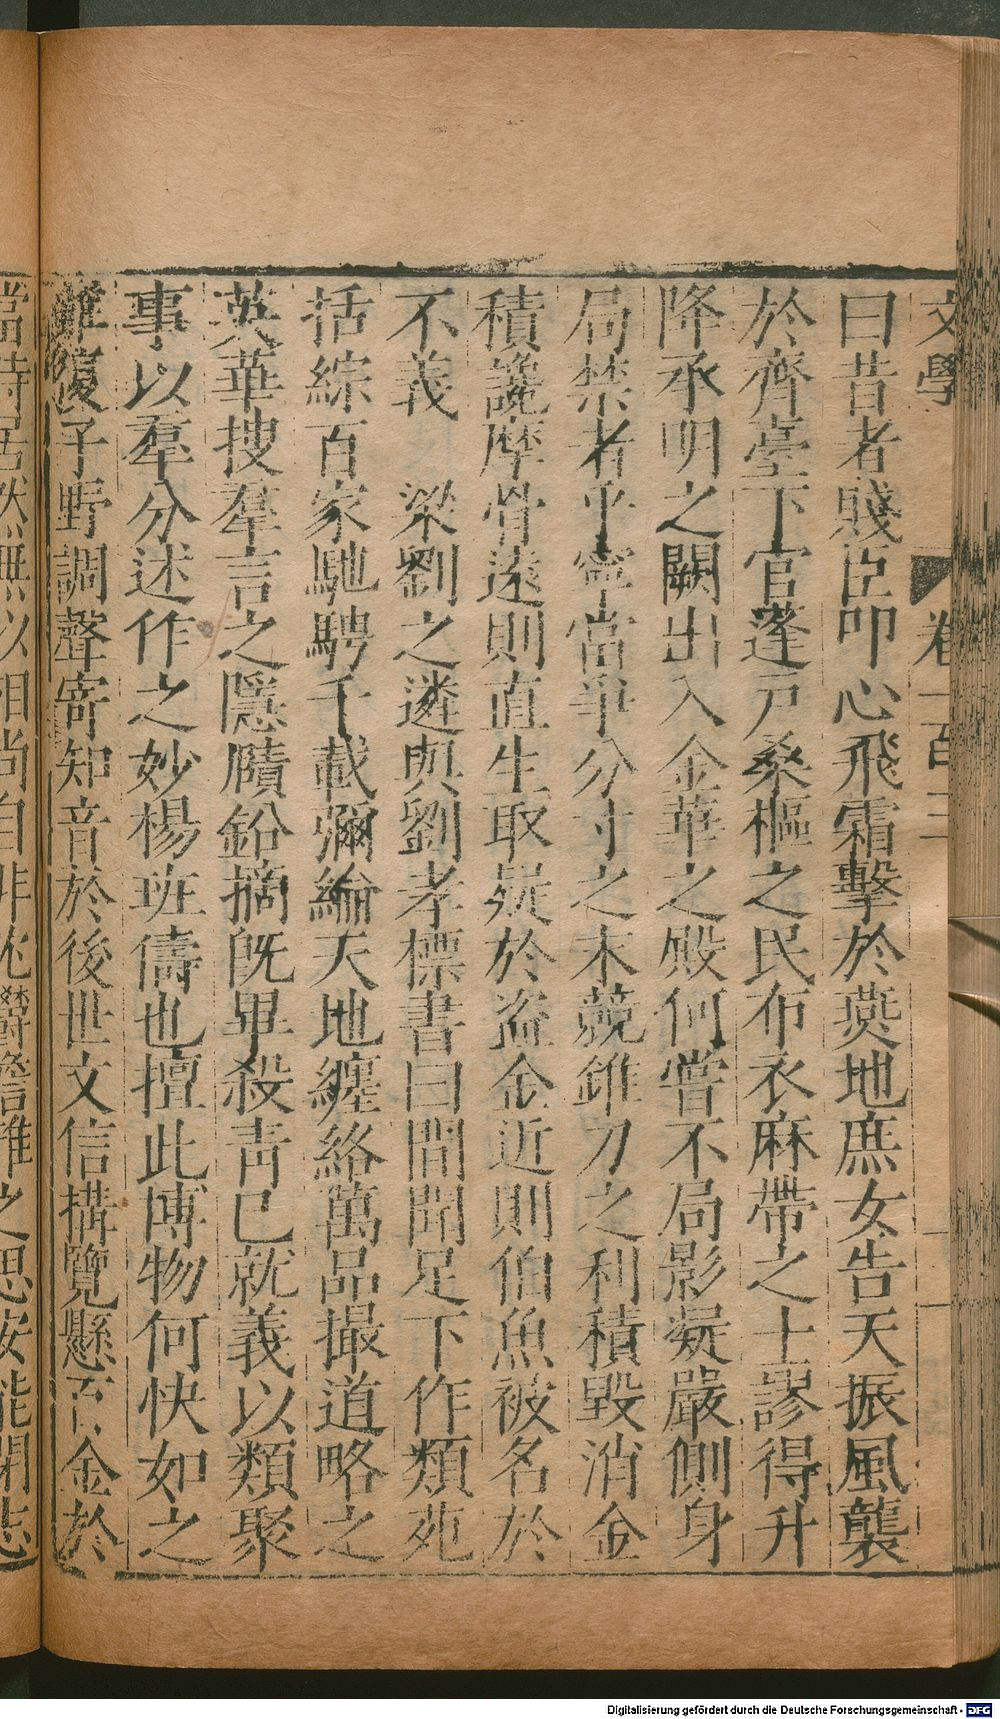 文學 卷一百三
曰昔者賤臣叩心飛霜擊於燕地庶女告天振風襲
於齊臺下官蓬戸桑樞之民布衣麻帶之士謬得升
降承明之闕出入金華之殿何嘗不局影凝嚴側身
局禁者乎寧當爭分寸之末競錐刀之利積毀消金
積讒摩骨遠則直生取疑於盗金近則伯魚被名於
不義　梁劉之遴與劉孝標書曰間聞足下作類苑
括綜百家馳騁千載彌綸天地纏絡萬品撮道略之
英華搜羣言之隱賾鉛摘旣畢殺靑已就義以類聚
事以羣分述作之妙楊班儔也擅此博物何快如之
雖復子野調聲寄知音於後世文信搆覽懸百金於
當時居然無以相尚自非沈鬱澹雅之思安能閉志
Digitalisierung gefördert durch die Deutsche Forschungsgemeinschaft - DFG